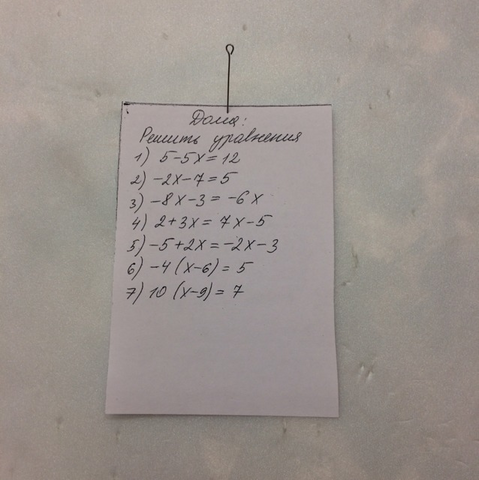 Дома:
Решить уравнения
1) 5-5x=12
2) -2x-7=5
3) -8x-3=-6x
4) 2+3x=7x-5
5) -5+2x=-2x-3
6) -4(x-6)=5
7) 10(x-9)=7